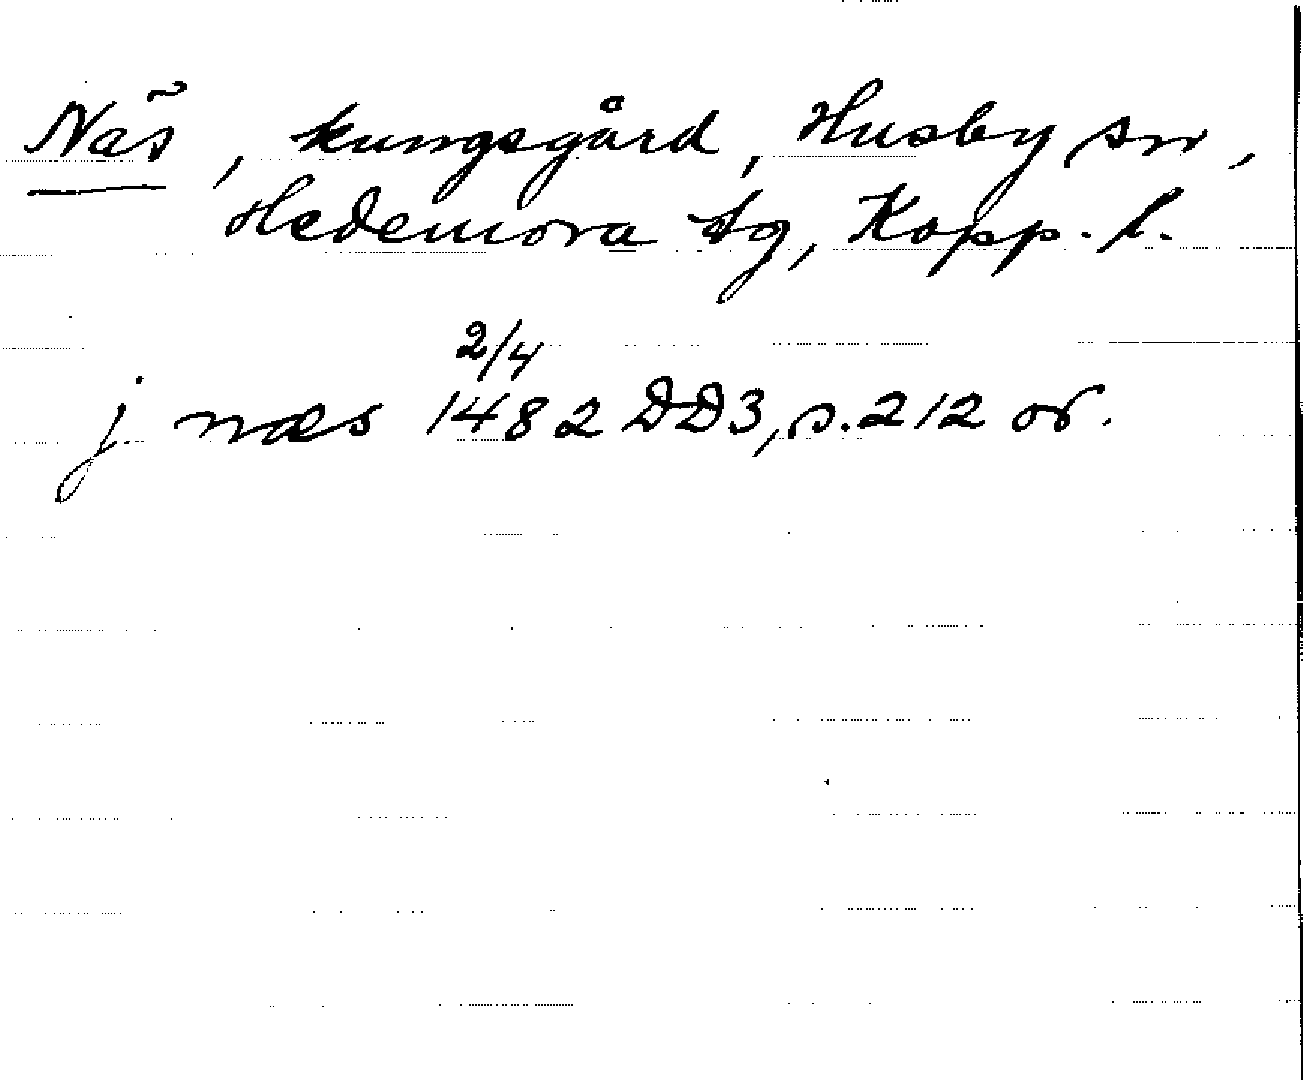 Näs, kungsgård, Husby sn,
Hedemora tg, Kopp. l.
2/4
j næs 1482 DD3, s. 212 or.